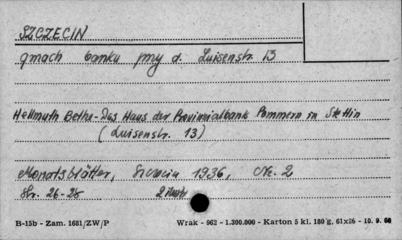 SZCZECIN
gmach banku przy d. Luisenstr. 13
Hellmuth Bethe - Das Haus der Provinzialbank Pommern in Stettin
( Luisenstr. 13)
Monatsblätter, Szczecin 1936, Nr. 2
Str. 26-28
B-15b - Zam. 1681/ZW/P Wrak - 962 - 1.300.000 - Karton 5 kl. 180 g. 61x26 - 10. 9. 66